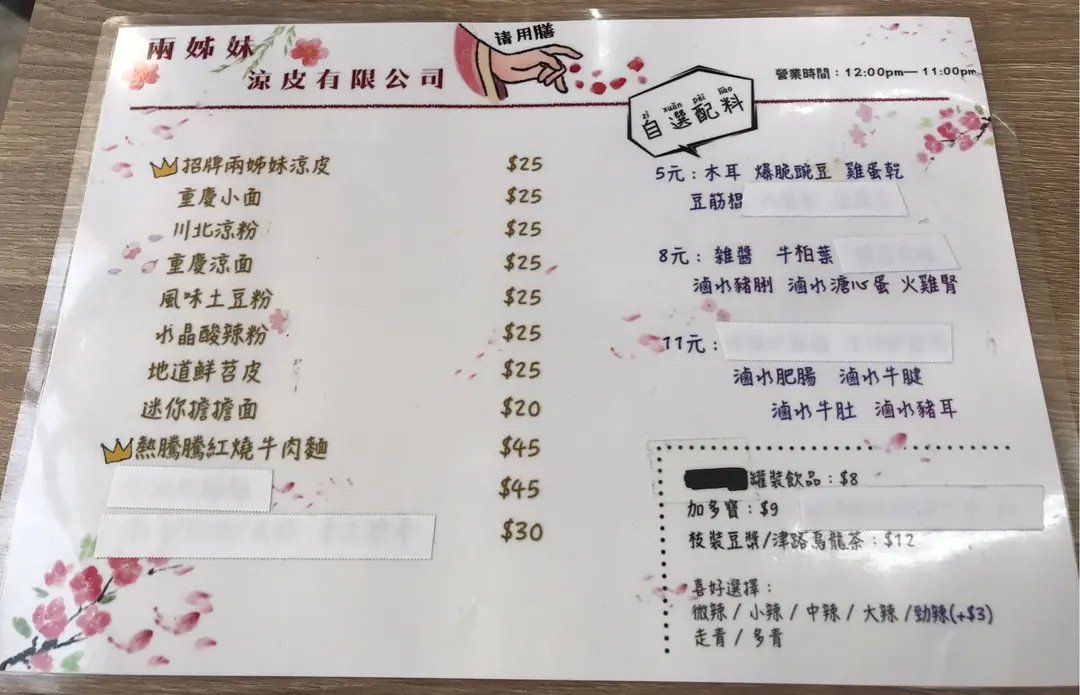 兩姊妹
涼皮有限公司
请用膳
營業時間：12:00pm—11:00pm
zì xuǎn pèi liào
自選配料
招牌兩姊妹涼皮 $25
重慶小面 $25
川北涼粉 $25
重慶涼面 $25
風味土豆粉 $25
水晶酸辣粉 $25
地道鮮苕皮 $25
迷你擔擔面 $20
熱騰騰紅燒牛肉麵 $45
$45
$30
5元：木耳 爆脆豌豆 雞蛋乾
豆筋棍
8元：雜醬 牛柏葉
滷水豬脷 滷水溏心蛋 火雞腎
11元：
滷水肥腸 滷水牛腱
滷水牛肚 滷水豬耳
罐裝飲品：$8
加多寶：$9
枝裝豆漿/津路烏龍茶：$12
喜好選擇：
微辣 / 小辣 / 中辣 / 大辣 /勁辣(+$3)
走青 / 多青